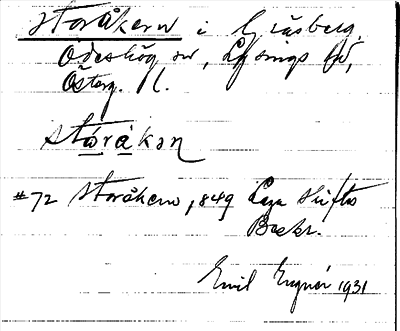 Storåkern i Gräsberg,
Ödeshög sn, Lysings hd,
Österg. l.
stòrákən
#72 Storåkern, 1849 Laga skiftes
Beskr.
Emil 1931